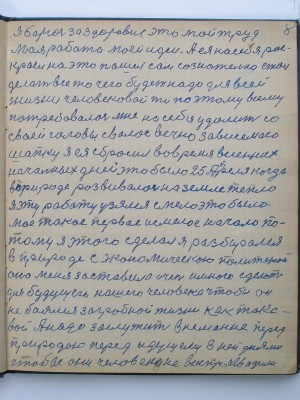 8
Я вам о за здоровие это мой труд
Моя работа моей идеи. А я на себя рас-
крыл на это пошел сам сознательно стал
делать все то чего будет надо для всей
жизни человековой то поэтому всему
потребовалось мне но себя удалить со
своей головы свалос вечно зависемаго
шапку я ея сбросил во время весенних
началных дней это было 25 Апреля когда
в природе розвивалос на земле тепло
я эту работу узялся смело это было
мое такое первое и смелое начало по-
тому я этого сделал я разбирался
в природе с экономическою политикой
она меня заставила очен много сделать
для будущего нашего человека чтобы он
не боялся загробной жизни как тако-
вой А надо заслужит внемание перед
природою перед идущими в ней днями
чтобы они человека не встречали